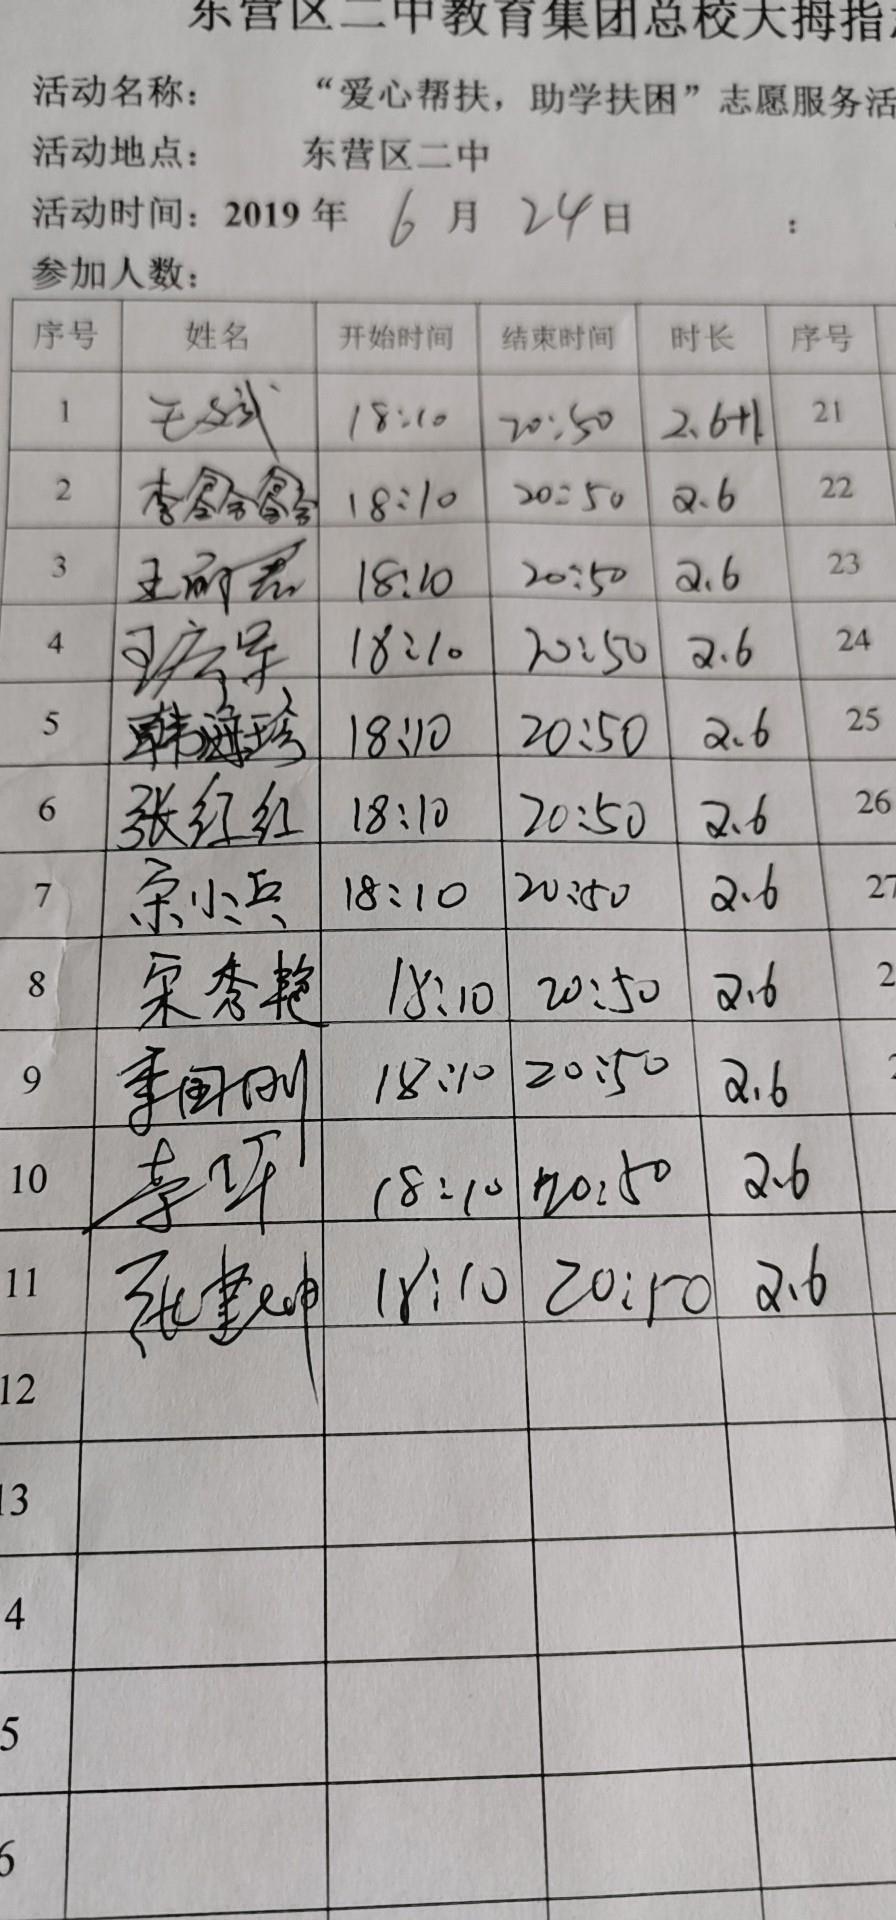 东营区二中教育集团总校大拇指
活动名称： “爱心帮扶，助学扶困”志愿服务活
活动地点： 东营区二中
活动时间：2019年 6 月 24日 ：
参加人数：
序号 姓名 开始时间 结束时间 时长 序号
1 18:10 20:50 2.6+1 21
2 18:10 20:50 2.6 22
3 18:10 20:50 2.6 23
4 18:10 20:50 2.6 24
5 韩海珍 18:10 20:50 2.6 25
6 张红红 18:10 20:50 2.6 26
7 宋小兵 18:10 20:50 2.6 27
8 宋秀艳 18:10 20:50 2.6 2
9 李国刚 18:10 20:50 2.6
10 18:10 20:50 2.6
11 18:10 20:50 2.6
12
13
4
5
6